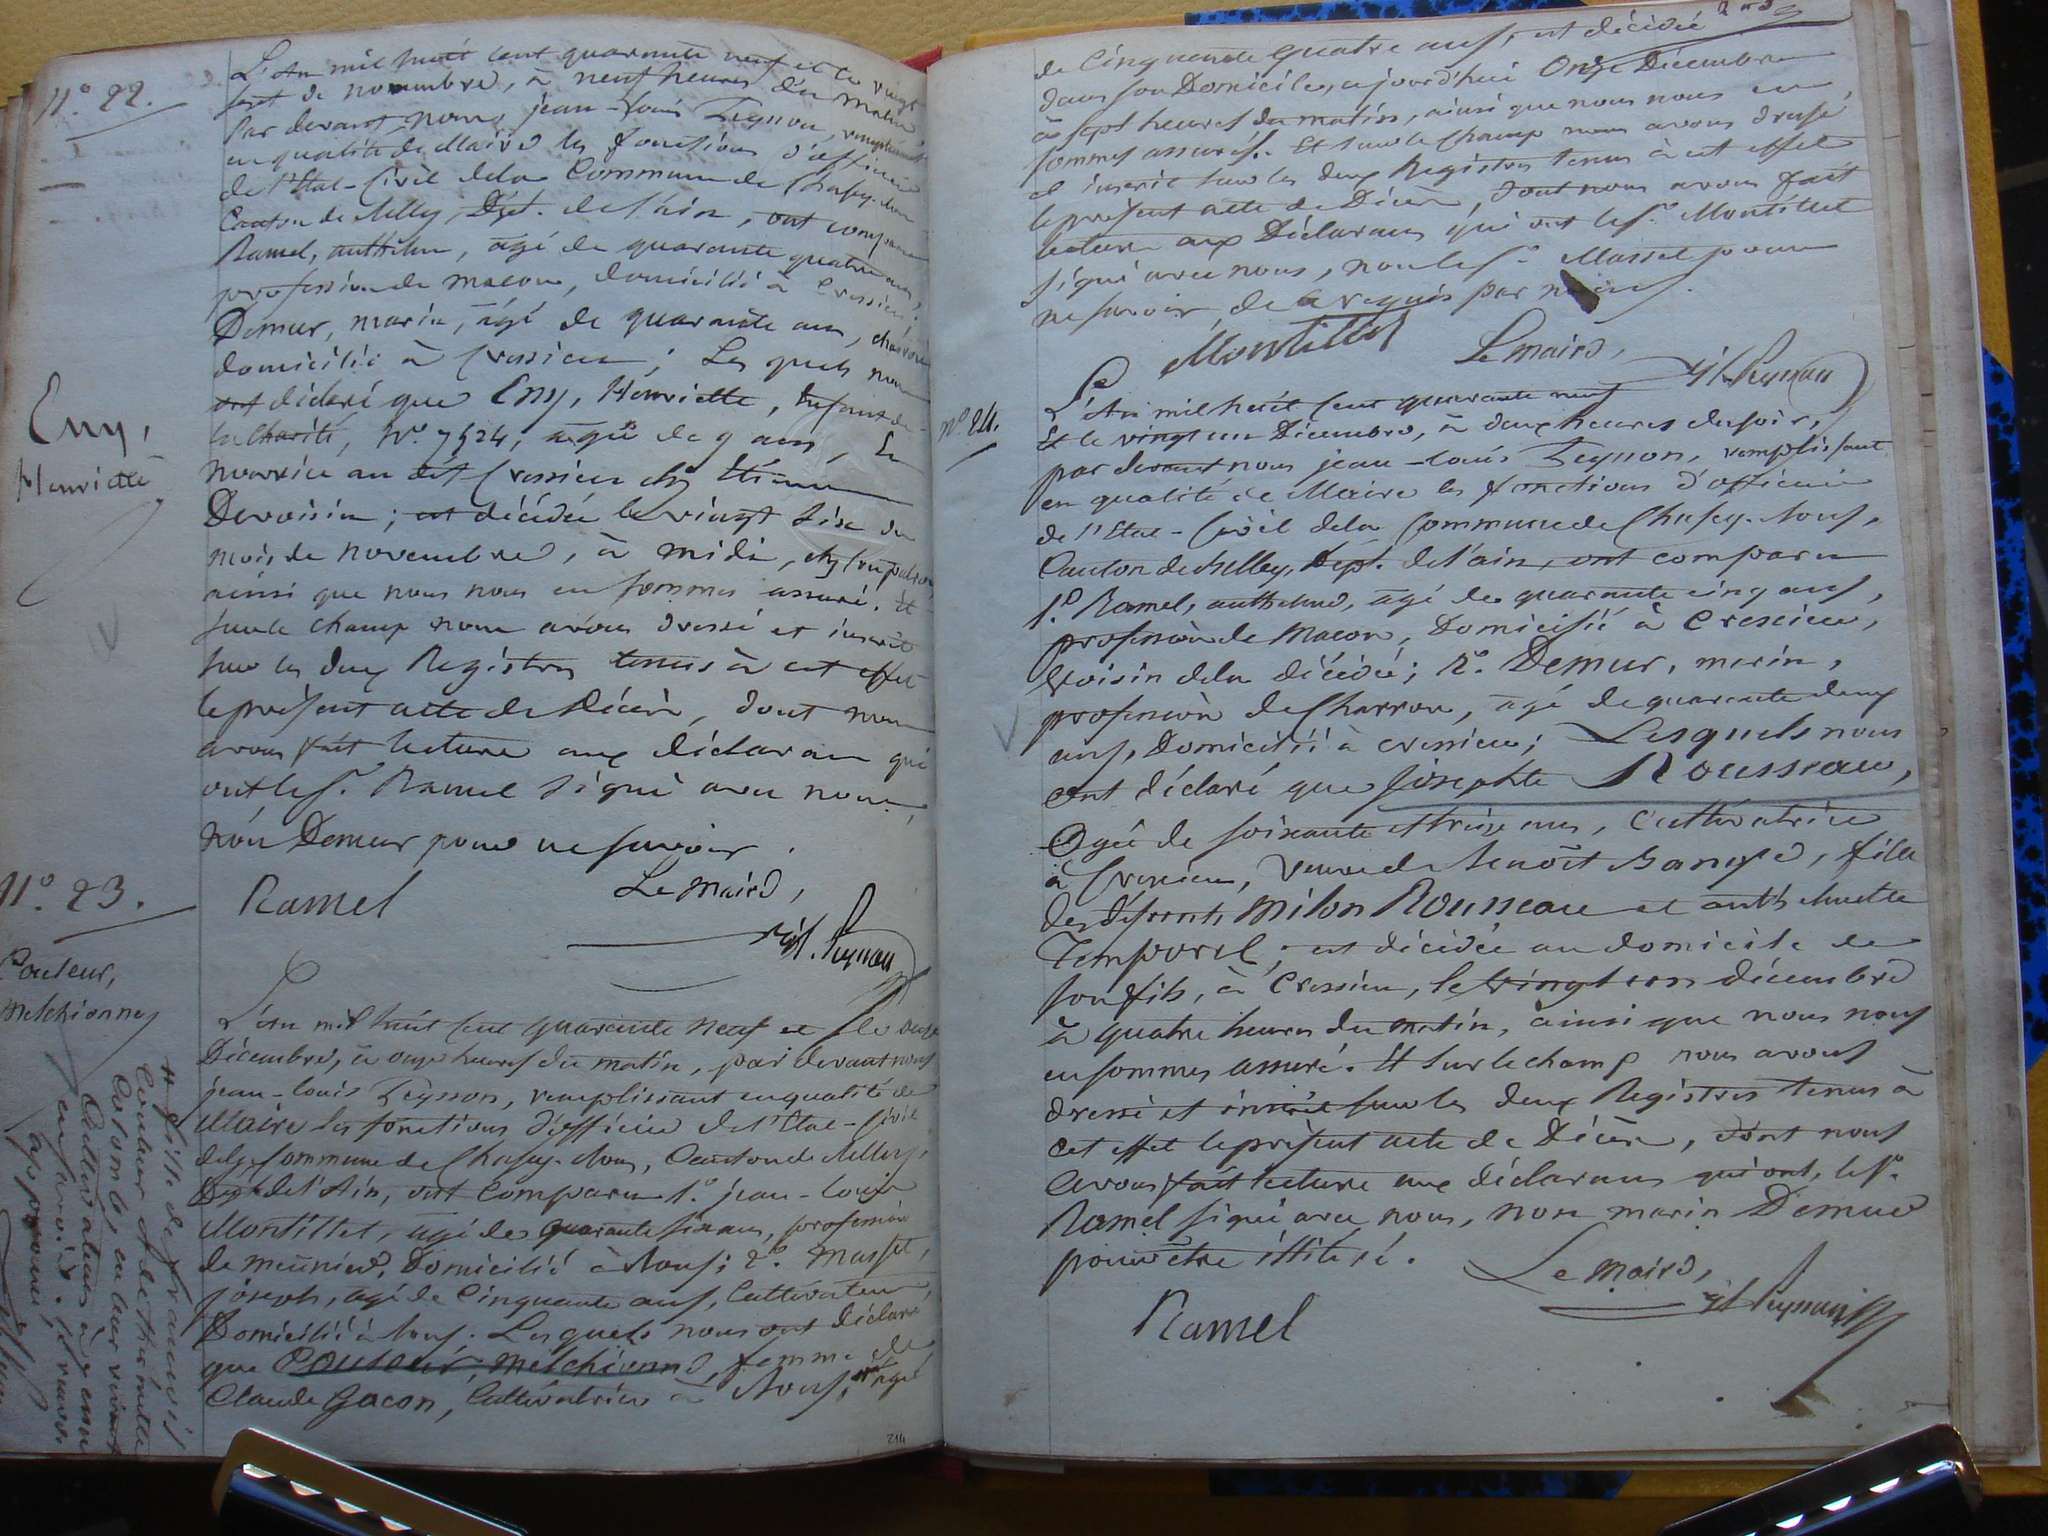 N.° 22.
L'An mil huit cent quarante neuf et le vingt
sept de novembre, à neuf heures du matin
Par devant nous jean-louis Peysson, remplissant
en qualité de Maire les fonctions d'officier
de l'Etat-Civil dela Commune de Chasey-
Canton de , Dépt. de l'ain, ont comparu
Ramel, anthelme, âgé de quarante quatre ans,
profession de macon, domicilié à Cressieu;
Demur, marin, âgé de quarante ans, charron
domicilié à Cressieu; Les quels nous
Eny,
Henriette
ont déclaré que Eny, Henriette, Enfant de
la Charité, N.° 7524, agée de 9 ans, En
nourrice au dit Cressieu chez Etienne
Devoisin; est décédée le vingt six du
mois de novembre, à midi, chez son patron
ainsi que nous nous en sommes assuré. Et
sur le champ nous avons dressé et inscrit
sur les deux Registres tenus à cet effet
le présent acte de Décès, dont nous
avons fait lecture aux déclarans qui
ont le s.r Ramel signé avec nous,
non Demur pour ne savoir.
Ramel
Le Maire,
J.L. Peysson
N.° 23.
Couteur,
Melchionne
L'an mil huit cent quarante neuf et le onze
Décembre, à onze heures du matin, par devant nous
jean-louis Peysson, remplissant en qualité de
Maire les fonctions d'officier de l'Etat-Civil
dela Commune de Chasey-, Canton de
Dépt. de l'Ain, ont comparu 1.° jean-louis
Montillet, âgé de quarante six ans, profession
de meunier, Domicilié à ; 2.° Masset,
joseph, agé de Cinquante ans, Cultivateur,
Domicilié à . Les quels nous ont déclaré
que Couteur, melchionne, femme de
Claude Gacon, Cultivatrice à , agée
# fille de francois
Couteur et de thumette
Colomb, en leur vivant
Cultivateurs à
214
de Cinquante quatre ans, est décédée
dans son Domicile, aujourd'hui Onze Décembre
à sept heures du matin, ainsi que nous nous en
sommes assurés. Et sur le champ nous avons dressé
et inscrit sur les deux Registres tenus à cet effet
le présent acte de Décès, dont nous avons fait
lecture aux Déclarans qui ont le s.r Montillet
signé avec nous, non le s.r Masset pour
ne savoir, de ce requis par nous.
Montillet
Le maire,
J.L. Peysson
N.° 24.
L'An mil huit cent quarante neuf
Et le vingt un Décembre, à deux heures du soir,
par devant nous jean-louis Peysson, remplissant
en qualité de Maire les fonctions d'officier
de l'Etat-Civil dela Commune de Chasey-,
Canton de , Dépt. de l'ain, ont comparu
1.° Ramel, anthelme, âgé de quarante cinq ans,
profession de Macon, Domicilié à Cressieu,
Voisin dela décédée; 2.° Demur, marin,
profession de Charron, âgé de quarante deux
ans, Domicilié à cressieu; Lesquels nous
ont déclaré que Josephte Rousseau,
Agée de soixante et treize ans, Cultivatrice
à Cressieu, veuve de benoît , fille
des défunts Milon Rousseau et anthelmette
Temporel; est décédée au domicile de
son fils, à Cressieu, le vingt un décembre
à quatre heures du matin, ainsi que nous nous
en sommes assuré. Et sur le champ nous avons
dressé et inscrit sur les deux Registres tenus à
cet effet le présent acte de Décès, dont nous
avons fait lecture aux déclarans qui ont, le s.r
Ramel signé avec nous, non marin Demur
pour être illiteré.
Le Maire,
J.L. Peysson
Ramel